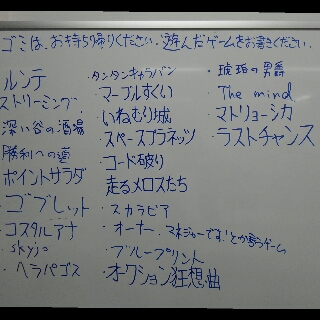 ゴミは、お持ち帰りください。遊んだゲームをお書きください。
ルンテ
ストリーミング
深い谷の酒場
勝利への道
ポイントサラダ
・ゴブレット
・コスタルアナ
・skyjo
・ヘラパゴス
・タンタンキャラバン
・マーブルすくい
・いねむり城
・スペースプラネッツ
・コード破り
走るメロスたち
・スカラビア
・オーナー、マネジャーです!とか言うゲーム
・ブループリント
・オークション狂想曲
・琥珀の男爵
・The mind
・マトリョーシカ
・ラストチャンス